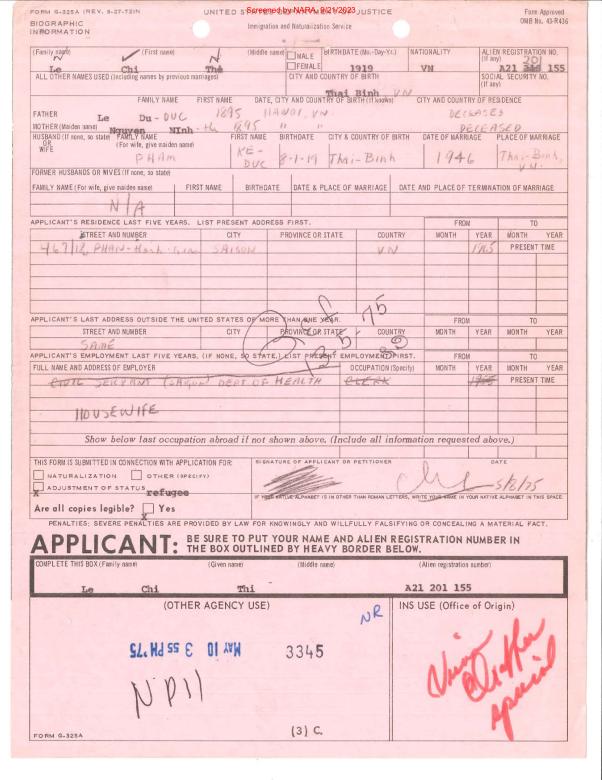 FORM G-325A (REV. 9-27-73)N
UNITED ST
Screened by NARA, 9/21/2023
JUSTICE
Form Approved
OMB No. 43-R436
BIOGRAPHIC
INFORMATION
Immigration and Naturalization Service
(Family name) (First name) (Middle name) MALE FEMALE BIRTHDATE (Mo.-Day-Yr.) NATIONALITY ALIEN REGISTRATION NO. (If any)
Le Chi Thi 1919 VN A21 201 155
ALL OTHER NAMES USED (Including names by previous marriages) CITY AND COUNTRY OF BIRTH SOCIAL SECURITY NO. (If any)
Thai Binh VN
FAMILY NAME FIRST NAME DATE, CITY AND COUNTRY OF BIRTH (If known) CITY AND COUNTRY OF RESIDENCE
FATHER Le Du-DUC 1895 HANOI, VN. DECEASED
MOTHER (Maiden name) Nguyen Ninh-thi 1895 " " DECEASED
HUSBAND (If none, so state) OR WIFE FAMILY NAME (For wife, give maiden name) FIRST NAME BIRTHDATE CITY & COUNTRY OF BIRTH DATE OF MARRIAGE PLACE OF MARRIAGE
PHAM KE-DUC 8-1-19 Thai-Binh 1946 Thai-Binh, VN.
FORMER HUSBANDS OR WIVES (If none, so state)
FAMILY NAME (For wife, give maiden name) FIRST NAME BIRTHDATE DATE & PLACE OF MARRIAGE DATE AND PLACE OF TERMINATION OF MARRIAGE
N/A
APPLICANT'S RESIDENCE LAST FIVE YEARS. LIST PRESENT ADDRESS FIRST. FROM TO
STREET AND NUMBER CITY PROVINCE OR STATE COUNTRY MONTH YEAR MONTH YEAR
SAIGON VN PRESENT TIME
APPLICANT'S LAST ADDRESS OUTSIDE THE UNITED STATES OF MORE THAN ONE YEAR. FROM TO
STREET AND NUMBER CITY PROVINCE OR STATE COUNTRY MONTH YEAR MONTH YEAR
SAME
APPLICANT'S EMPLOYMENT LAST FIVE YEARS, (IF NONE, SO STATE,) LIST PRESENT EMPLOYMENT FIRST. FROM TO
FULL NAME AND ADDRESS OF EMPLOYER OCCUPATION (Specify) MONTH YEAR MONTH YEAR
CIVIL SERVANT (SAIGON) DEPT OF HEALTH CLERK PRESENT TIME
HOUSEWIFE
Show below last occupation abroad if not shown above. (Include all information requested above.)
THIS FORM IS SUBMITTED IN CONNECTION WITH APPLICATION FOR: SIGNATURE OF APPLICANT OR PETITIONER DATE
NATURALIZATION OTHER (SPECIFY)
x ADJUSTMENT OF STATUS refugee 5/8/75
IF YOUR NATIVE ALPHABET IS IN OTHER THAN ROMAN LETTERS, WRITE YOUR NAME IN YOUR NATIVE ALPHABET IN THIS SPACE.
Are all copies legible? x Yes
PENALTIES: SEVERE PENALTIES ARE PROVIDED BY LAW FOR KNOWINGLY AND WILLFULLY FALSIFYING OR CONCEALING A MATERIAL FACT.
APPLICANT: BE SURE TO PUT YOUR NAME AND ALIEN REGISTRATION NUMBER IN
THE BOX OUTLINED BY HEAVY BORDER BELOW.
COMPLETE THIS BOX (Family name) (Given name) (Middle name) (Alien registration number)
Le Chi Thi A21 201 155
(OTHER AGENCY USE) INS USE (Office of Origin)
NR
MAY 10 3 55 PM '75 3345
NP11
special
(3) C.
FORM G-325A